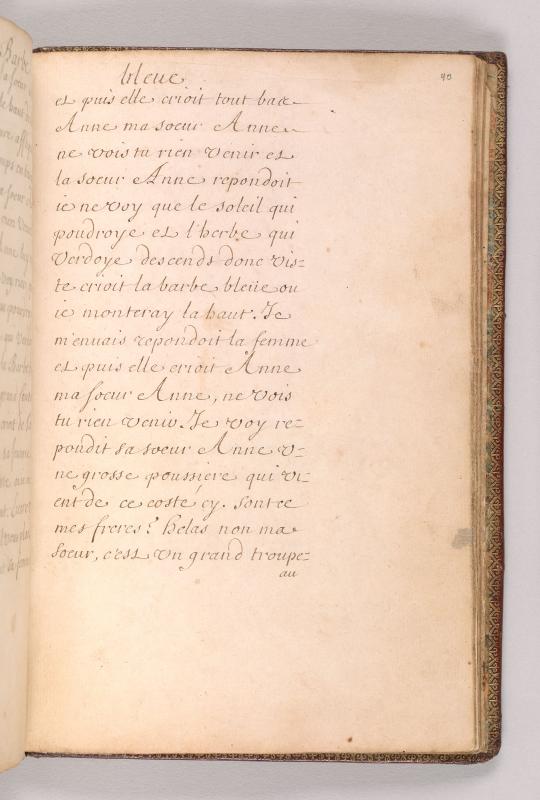 bleue
40
et puis elle crioit tout bas
Anne ma soeur Anne
ne vois tu rien venir et
la soeur Anne repondoit
ie ne voy que le soleil qui
poudroye et l'herbe qui
Verdoye descends donc vis=
te crioit la barbe bleüe ou
ie monteray la haut. Je
m'en vais repondoit la femme
et puis elle crioit Anne
ma soeur Anne, ne vois
tu rien venir. Je voy re=
pondit sa soeur Anne v=
ne grosse poussiere qui vi=
ent de ce costé cy. sont ce
mes freres? helas non ma
soeur, c'est un grand troupe=
au